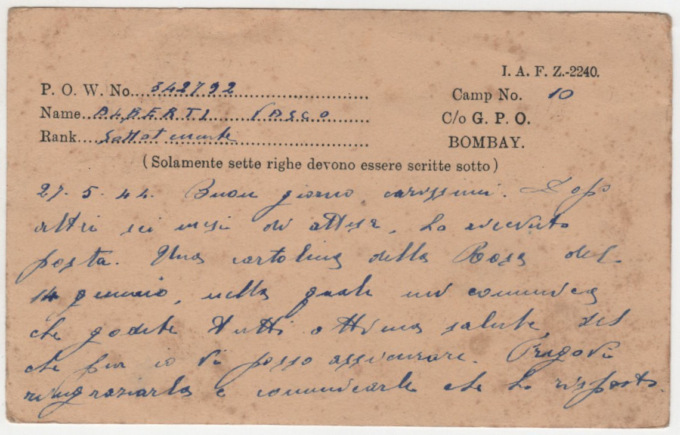 I. A. F. Z.-2240.
P. O. W. No. 342792 Camp No. 10
Name ALBERTI VASCO C/o G. P. O.
Rank Sottotenente BOMBAY.
(Solamente sette righe devono essere scritte sotto)
27. 5. 44. Buon giorno carissimi. Dopo
altri sei mesi di attesa, ho ricevuto
posta. Una cartolina della Rosa del
14 gennaio, nella quale mi comunica
che godete tutti ottima salute del
che pur io vi posso assicurare. Pregovi
ringraziarla e comunicarle che ho risposto.